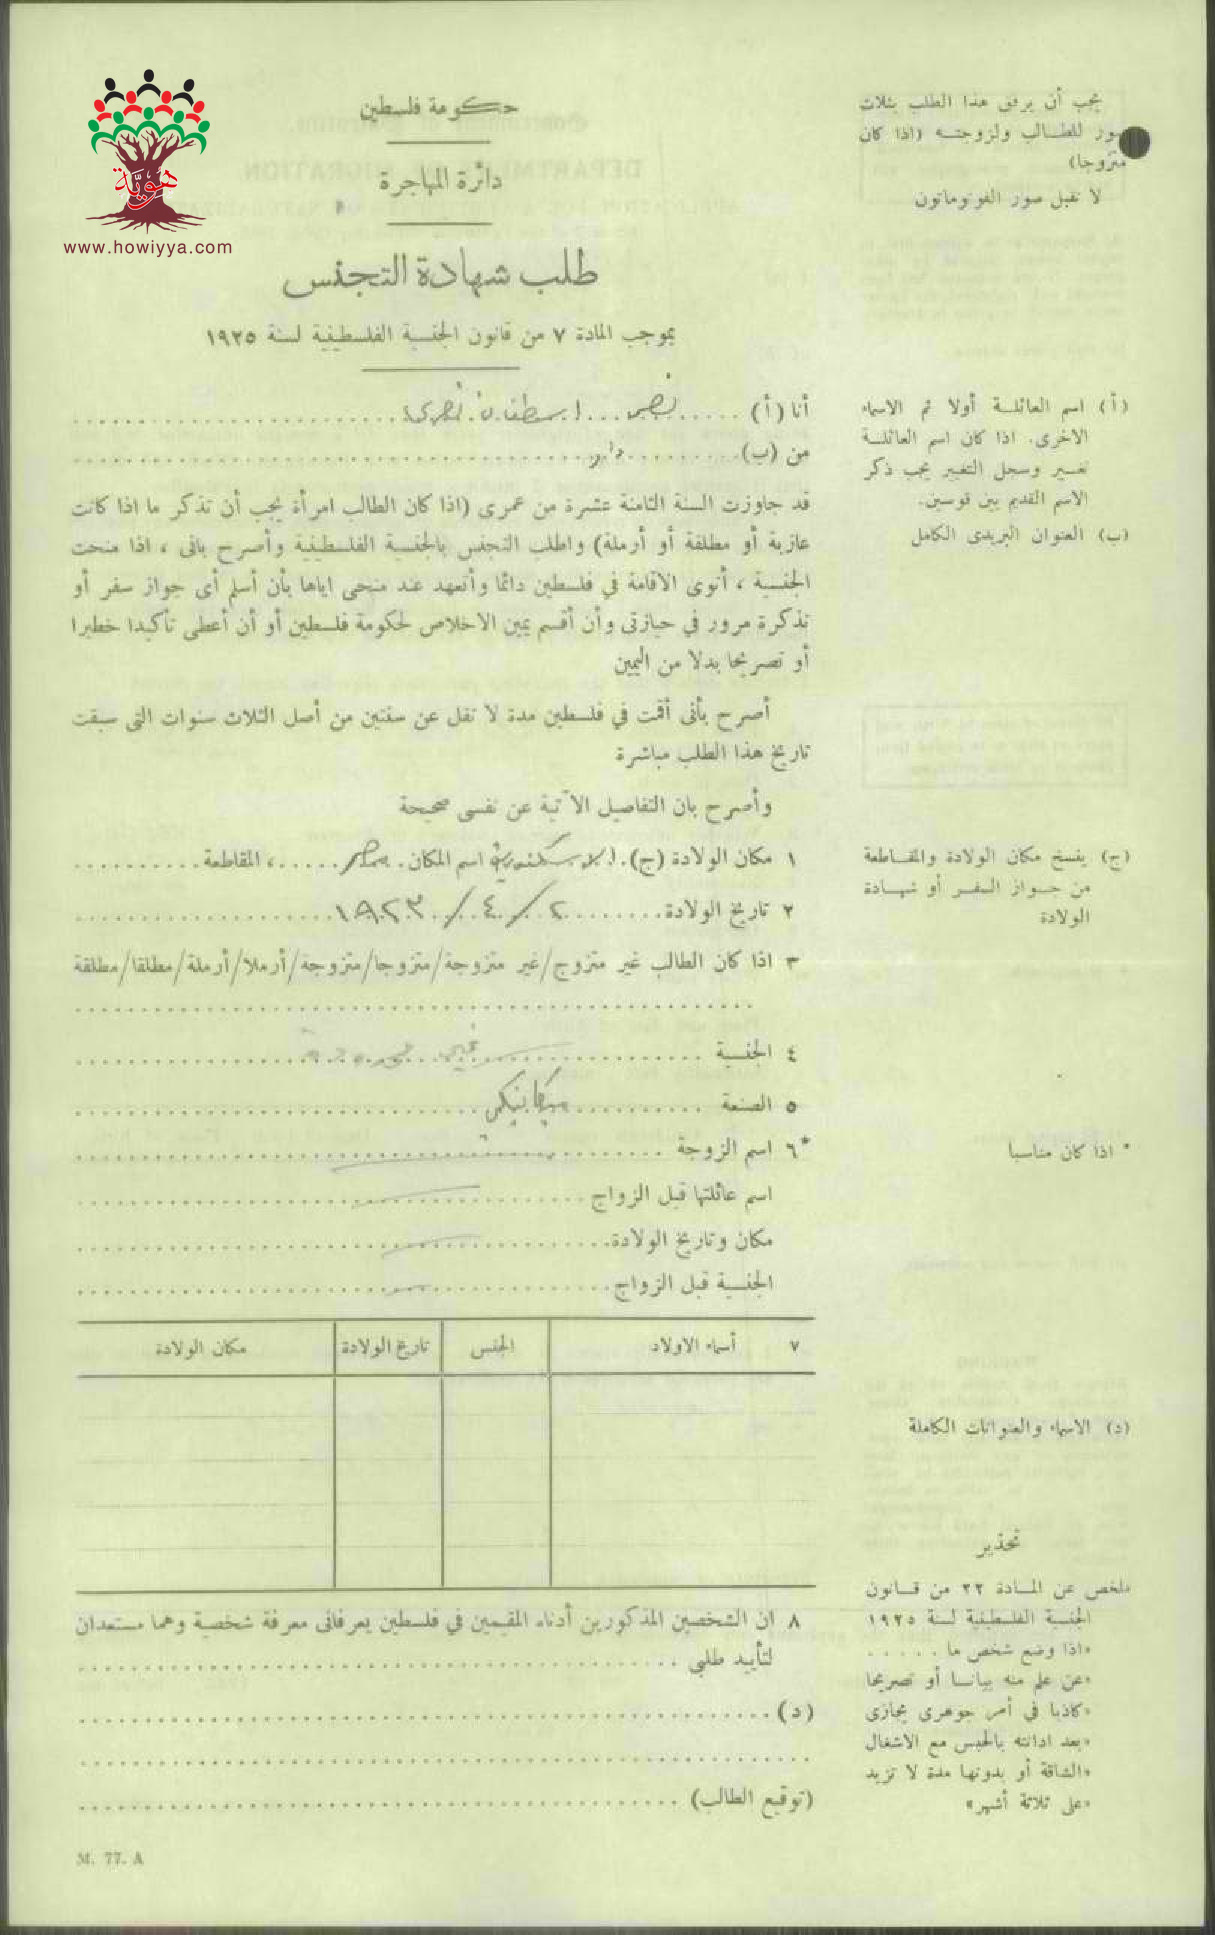 هوية
www.howiyya.com
حكومة فلسطين
دائرة المهاجرة
طلب شهادة التجنس
بموجب المادة ٧ من قانون الجنسية الفلسطينية لسنة ١٩٢٥
يجب أن يرفق هذا الطلب بثلاث
صور للطالب ولزوجته (اذا كان
متزوجا)
لا تقبل صور الفوتوماتون
أنا (أ)
من (ب)
قد جاوزت السنة الثامنة عشرة من عمرى (اذا كان الطالب امرأة يجب أن تذكر ما اذا كانت
عازبة أو مطلقة أو أرملة) واطلب التجنس بالجنسية الفلسطينية وأصرح بانى ، اذا منحت
الجنسية ، أنوى الاقامة في فلسطين دائما وأتعهد عند منحى اياها بأن أسلم أى جواز سفر أو
تذكرة مرور في حيازتى وأن أقسم يمين الاخلاص لحكومة فلسطين أو أن أعطى تأكيدا خطيرا
أو تصريحا بدلا من اليمين
أصرح بأنى أقمت في فلسطين مدة لا تقل عن سنتين من أصل الثلاث سنوات التى سبقت
تاريخ هذا الطلب مباشرة
وأصرح بان التفاصيل الآتية عن نفسى صحيحة
١ مكان الولادة (ج). الاسكندرية اسم المكان. مصر ، المقاطعة
٢ تاريخ الولادة ٢ / ٤ / ١٩٢٣
٣ اذا كان الطالب غير متزوج/غير متزوجة/متزوجا/متزوجة/أرملا/أرملة/مطلقا/مطلقة
٤ الجنسية
٥ الصنعة ميكانيكي
*٦ اسم الزوجة
اسم عائلتها قبل الزواج
مكان وتاريخ الولادة
الجنسية قبل الزواج
٧ أسماء الاولاد الجنس تاريخ الولادة مكان الولادة
٨ ان الشخصين المذكورين أدناه المقيمين في فلسطين يعرفانى معرفة شخصية وهما مستعدان
لتأييد طلبي
(د)
(توقيع الطالب)
(أ) اسم العائلة أولا ثم الاسماء
الاخرى. اذا كان اسم العائلة
تغير وسجل التغيير يجب ذكر
الاسم القديم بين قوسين.
(ب) العنوان البريدى الكامل
(ج) ينسخ مكان الولادة والمقاطعة
من جواز السفر أو شهادة
الولادة
* اذا كان مناسبا
(د) الاسماء والعنوانات الكاملة
تحذير
ملخص عن المادة ٢٢ من قانون
الجنسية الفلسطينية لسنة ١٩٢٥
«اذا وضع شخص ما . . . . .
«عن علم منه بيانا أو تصريحا
«كاذبا في أمر جوهرى يجازى
«بعد ادانته بالحبس مع الاشغال
«الشاقة أو بدونها مدة لا تزيد
«على ثلاثة أشهر»
M. 77. A